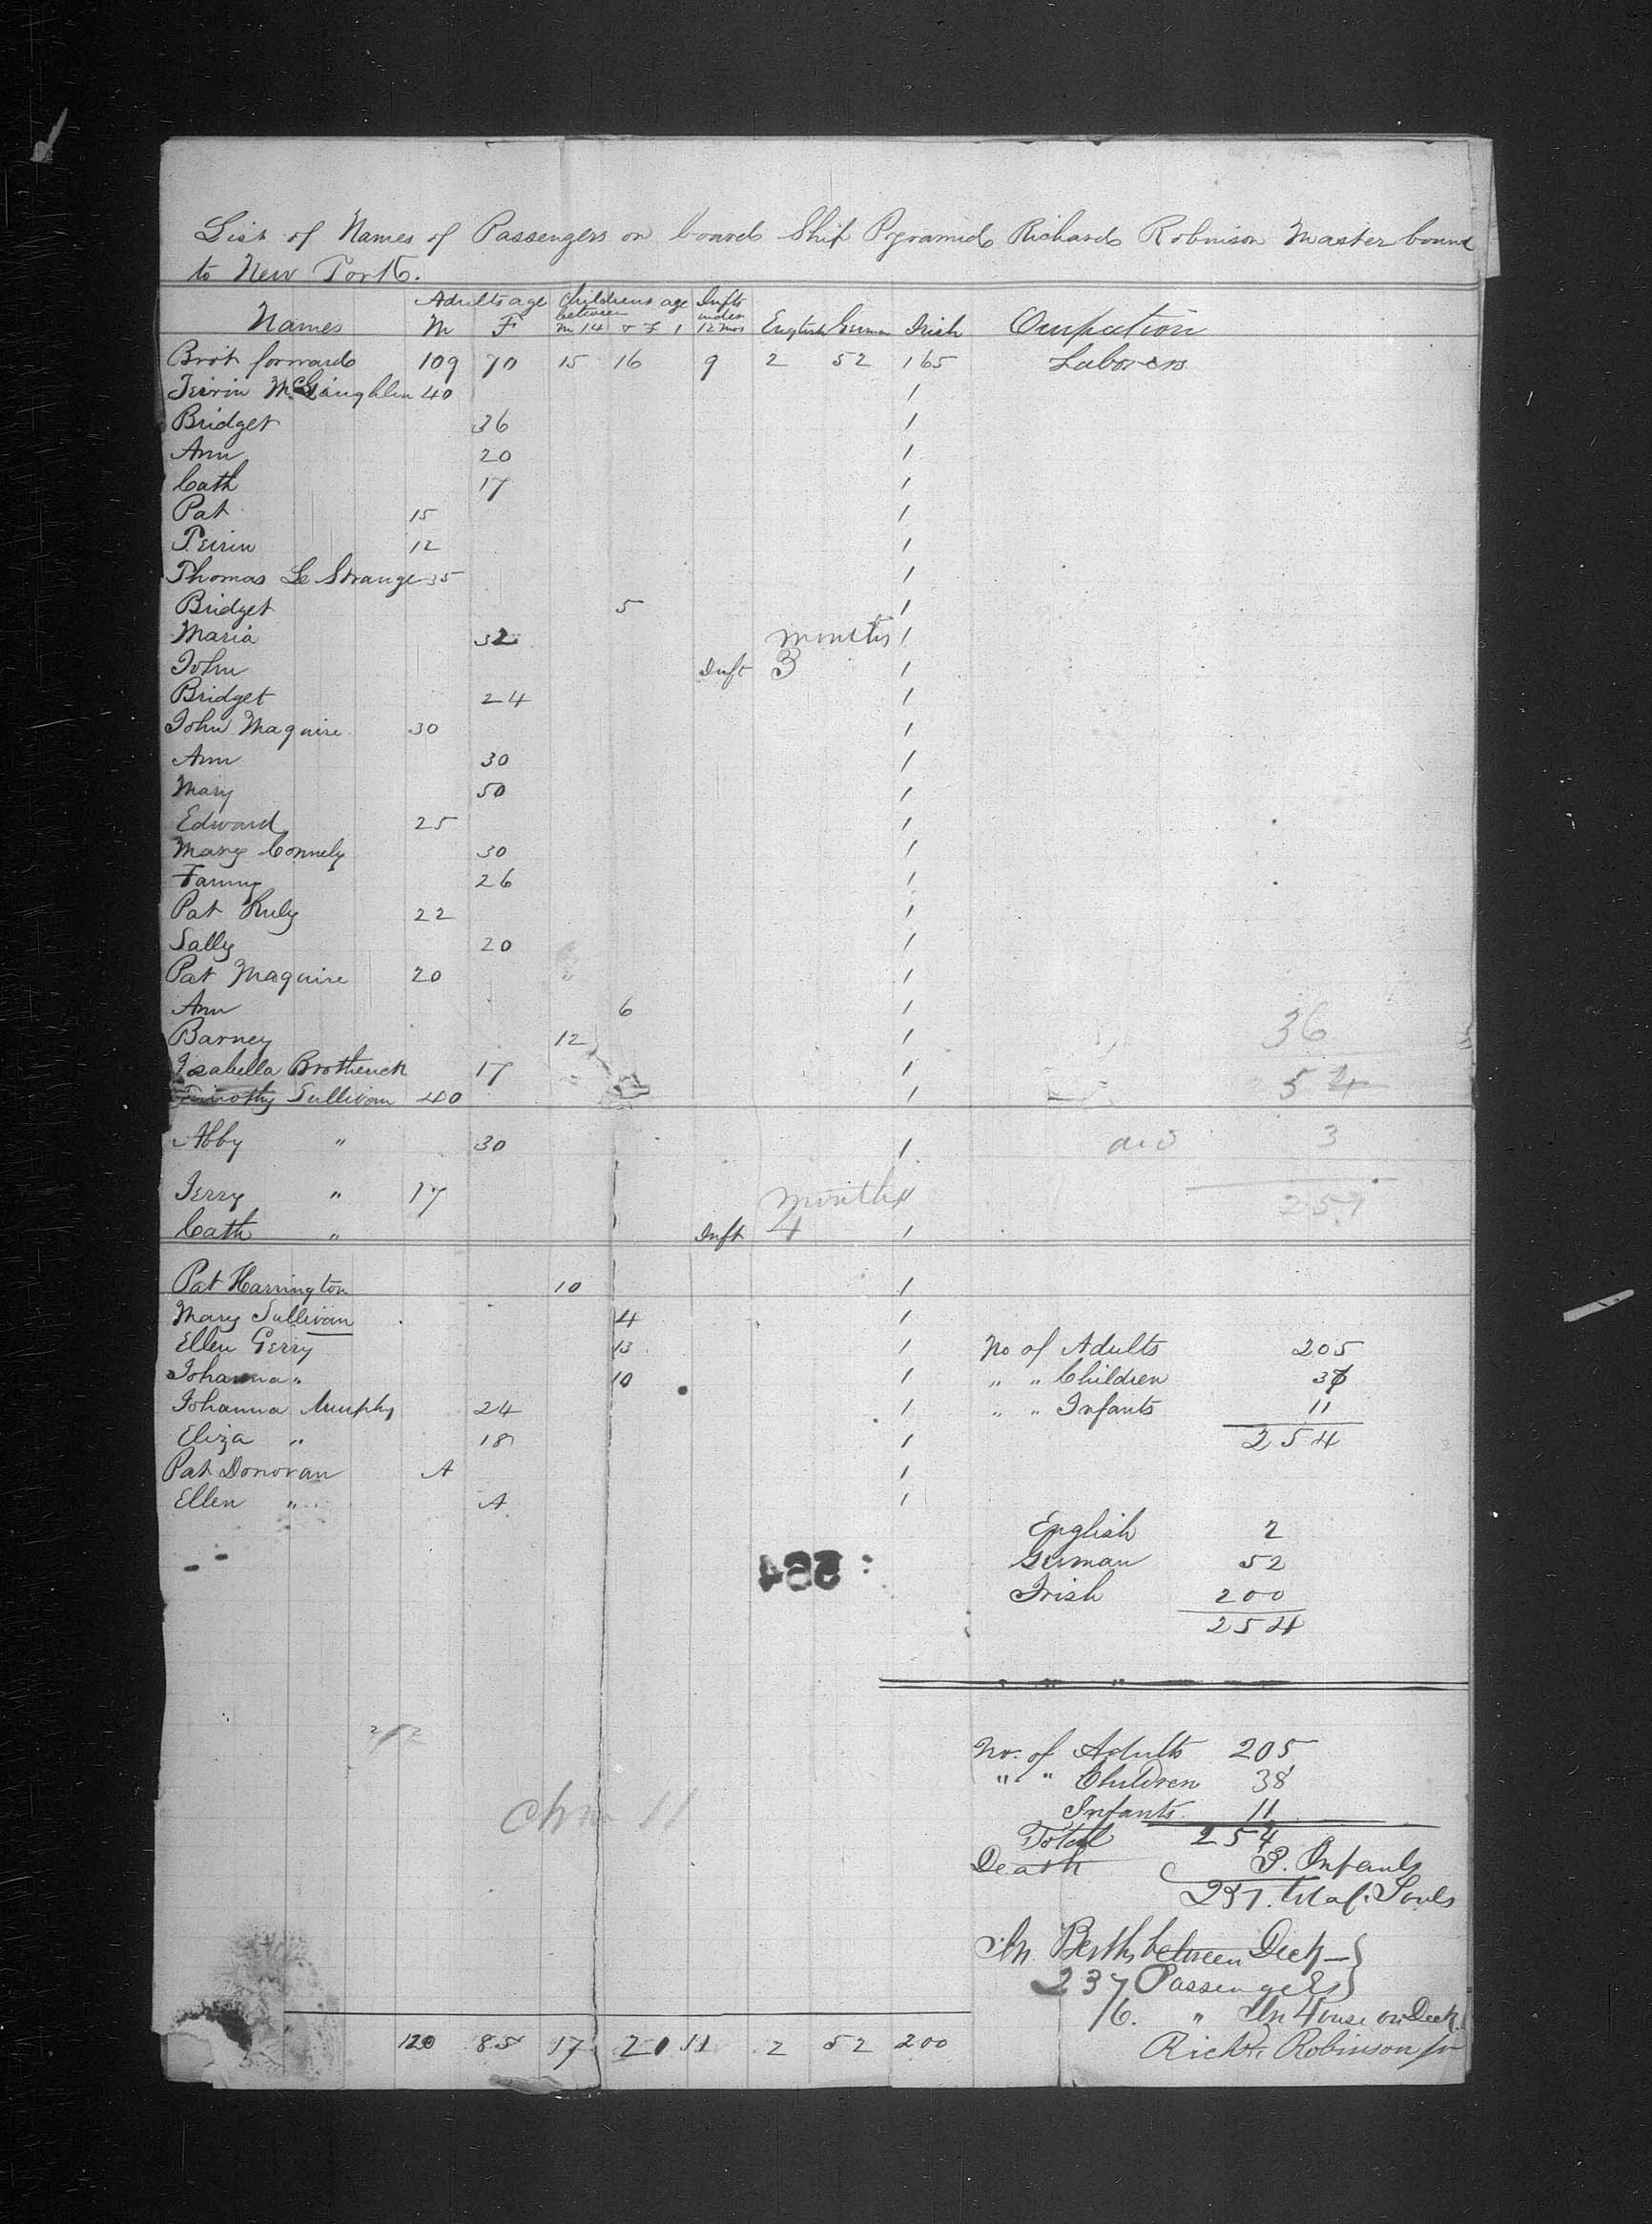 List of Names of Passengers on board Ship Pyramid Richard Robinson Master bound
to New York.
Adults age Childrens age Infts
between under
Names M F M 14 & F 1 12 mos English German Irish Occupation
Brot forward 109 70 15 16 9 2 52 165 Laborers
McLaughlin 40 1
Bridget 36 1
Ann 20 1
Cath 17 1
Pat 15 1
12 1
Thomas Le Strange 35 1
Bridget 5 1
Maria 32 months 1
John Inft 3 1
Bridget 24 1
John Maguire 30 1
Ann 30 1
Mary 50 1
Edward 25 1
Mary Connely 30 1
Fanny 26 1
Pat 22 1
Sally 20 1
Pat Maguire 20 1
Ann 6 1
Barney 12 1 36
Isabella Brotherick 17 1
Timothy Sullivan 40 1 54
Abby " 30 1 3
Jerry " 17 months 1
Cath " Inft 4 1 251
Pat Harrington 10 1
Mary Sullivan 4 1
Ellen Gerry 13 1 No of Adults 205
Johanna " 10 1 " " Children 38
Johanna Murphy 24 1 " " Infants 11
Eliza " 18 1 254
Pat Donovan A 1
Ellen " A 1
English 2
German 52
284
Irish 200
254
No. of Adults 205
" " Children 38
Infants 11
Total 254
Death 3. Infants
251. total Souls
In Berths between Deck
237 Passengers
16. " In House on Deck
120 85 17 20 11 2 52 200
Richd. Robinson